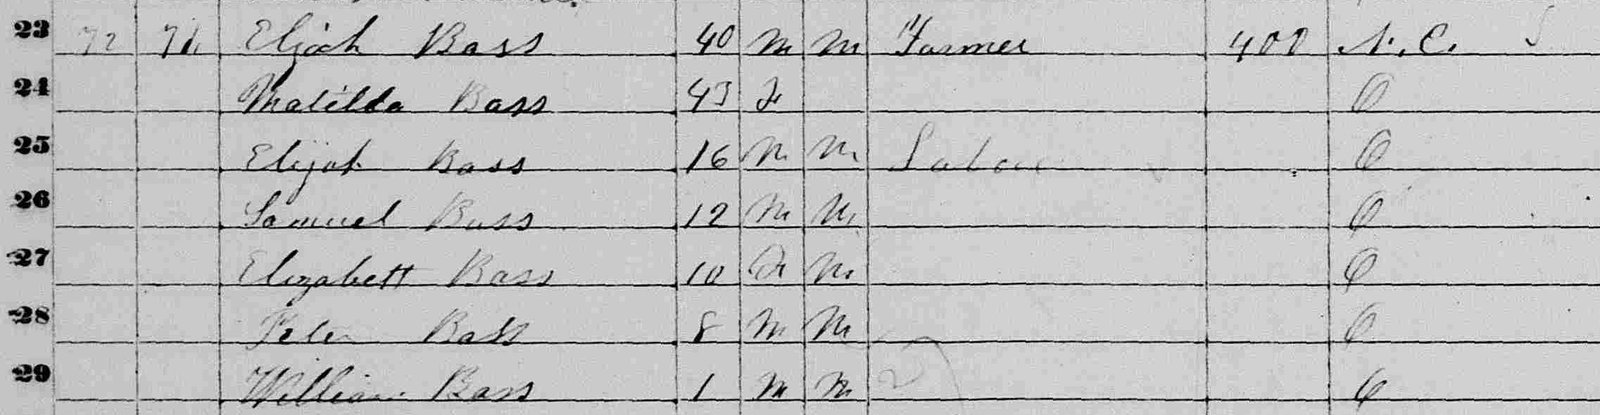 23 72 71 Elijah Bass 40 M M Farmer 400 N. C.
24 Matilda Bass 43 F O
25 Elijah Bass 16 M M Labor O
26 Samuel Bass 12 M M O
27 Elizabeth Bass 10 F M O
28 Peter Bass 8 M M O
29 William Bass 1 M M O